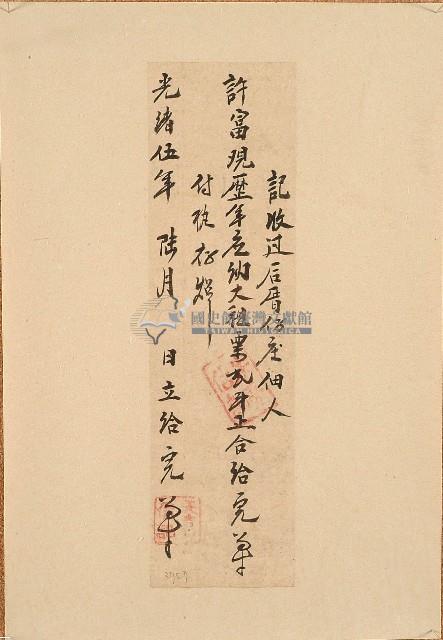 記收过后厝仔庄佃人
許富現歷年应納大租粟斗正合給完單
付執存炤
光緒伍年 陸月 日立給完單
國史館臺灣文獻館
TAIWAN HISTORICA